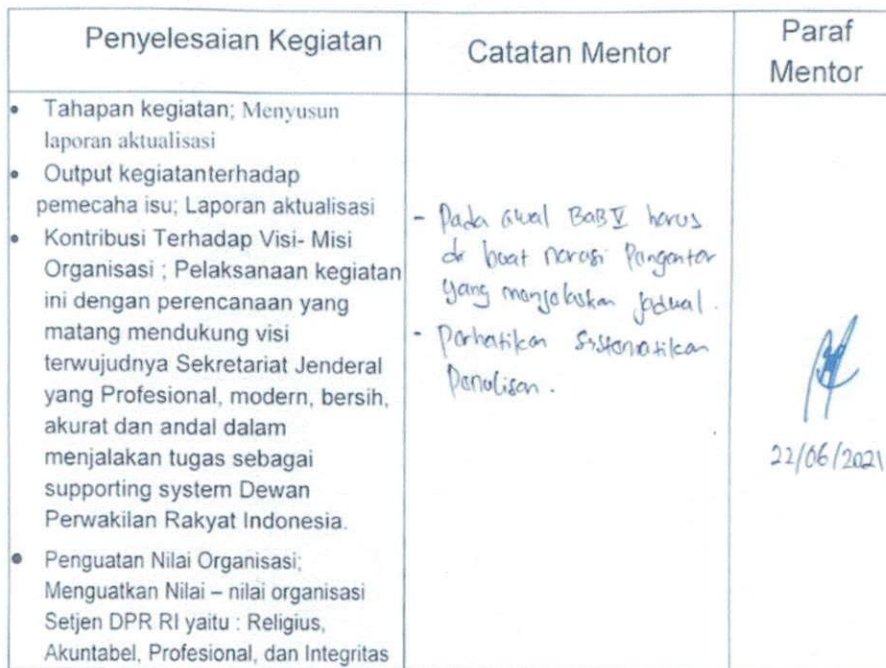 Penyelesaian Kegiatan
Catatan Mentor
Paraf
Mentor
• Tahapan kegiatan; Menyusun
laporan aktualisasi
• Output kegiatanterhadap
pemecaha isu; Laporan aktualisasi
• Kontribusi Terhadap Visi- Misi
Organisasi ; Pelaksanaan kegiatan
ini dengan perencanaan yang
matang mendukung visi
terwujudnya Sekretariat Jenderal
yang Profesional, modern, bersih,
akurat dan andal dalam
menjalakan tugas sebagai
supporting system Dewan
Perwakilan Rakyat Indonesia.
• Penguatan Nilai Organisasi;
Menguatkan Nilai – nilai organisasi
Setjen DPR RI yaitu : Religius,
Akuntabel, Profesional, dan Integritas
- Pada awal BaB V harus
di buat narasi Pengantar
yang menjelaskan jadwal.
- Perhatikan Sistematikan
Penulisan.
22/06/2021